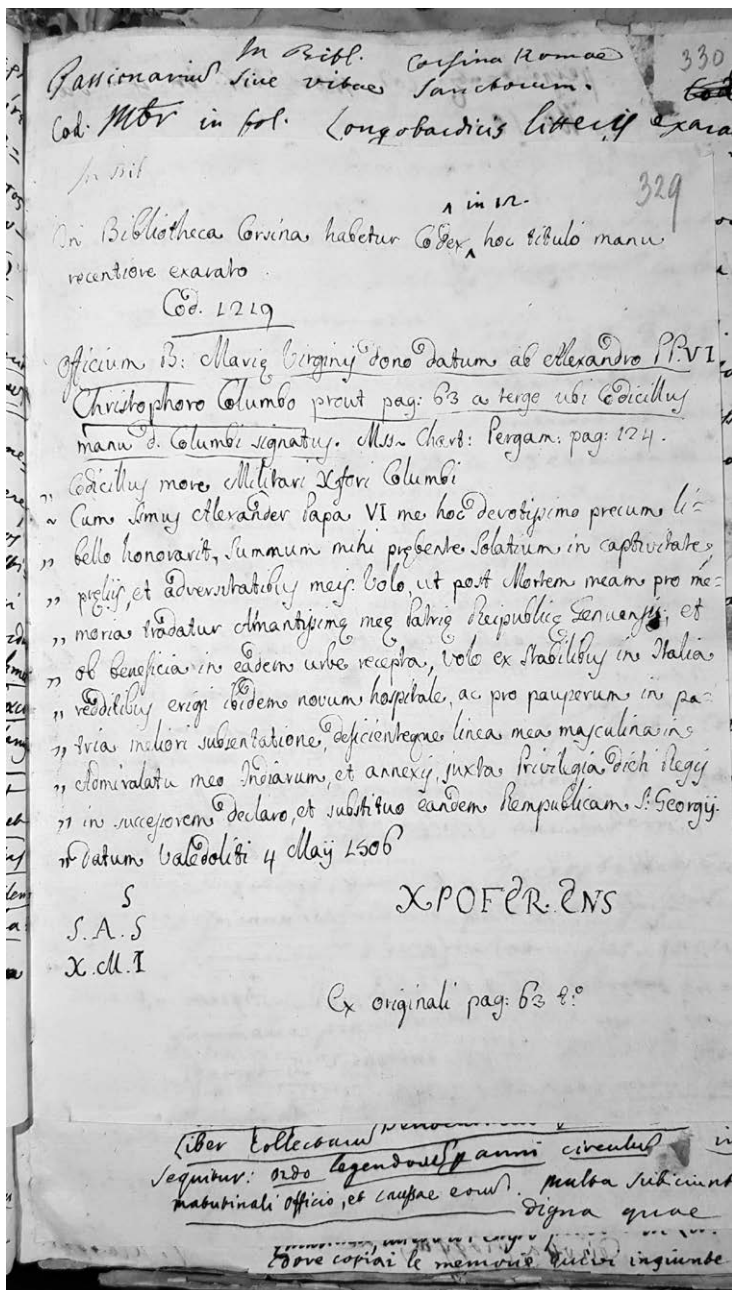 In Bibl. Corsina Romae
330
Passionarius sive vitae Sanctorum.
Cod: Mbr in fol. Longobardicis litteris exara
In Bibl
329
In Bibliotheca Corsina habetur Codex ^ in 12. hoc titulo manu
recentiore exarato.
Cod. 1219
Officium B: Marię Virginis dono datum ab Alexandro PP. VI
Christophoro Columbo prout pag: 63 a tergo ubi Codicillus
manu d. Columbi signatus. Mss. Chart: Pergam: pag: 124.
„ Codicillus more Militari Xfori Columbi
„ Cum Smus Alexander Papa VI me hoc devotissimo precum li=
„ bello honoravit, summum mihi prębente solatium in captivitate,
„ pręlijs, et adversitatibus meis. Volo, ut post Mortem meam pro me=
„ moria tradatur Amantissimę meę Patrię Reipublicę Genuensis, et
„ ob beneficia in eadem urbe recepta, volo ex stabilibus in Italia
„ redditibus erigi ibidem novum hospitale, ac pro pauperum in pa=
„ tria meliori subsentatione, deficienteque linea mea masculina in
„ Admiralatu meo Indiarum, et annexis, juxta Privilegia dicti Regis
„ in successorem declaro, et substituo eandem Rempublicam S. Georgij.
„ Datum Valedoliti 4 Maij 1506
S
S. A. S
X. M. I
XPOFERENS
Ex originali pag: 63 t.º
Liber Collectarum
sequitur: ordo legendorum p anni circulum in
matutinali officio, et caussae eorum. multa subiciunt
digna quae
dove copiai le memorie